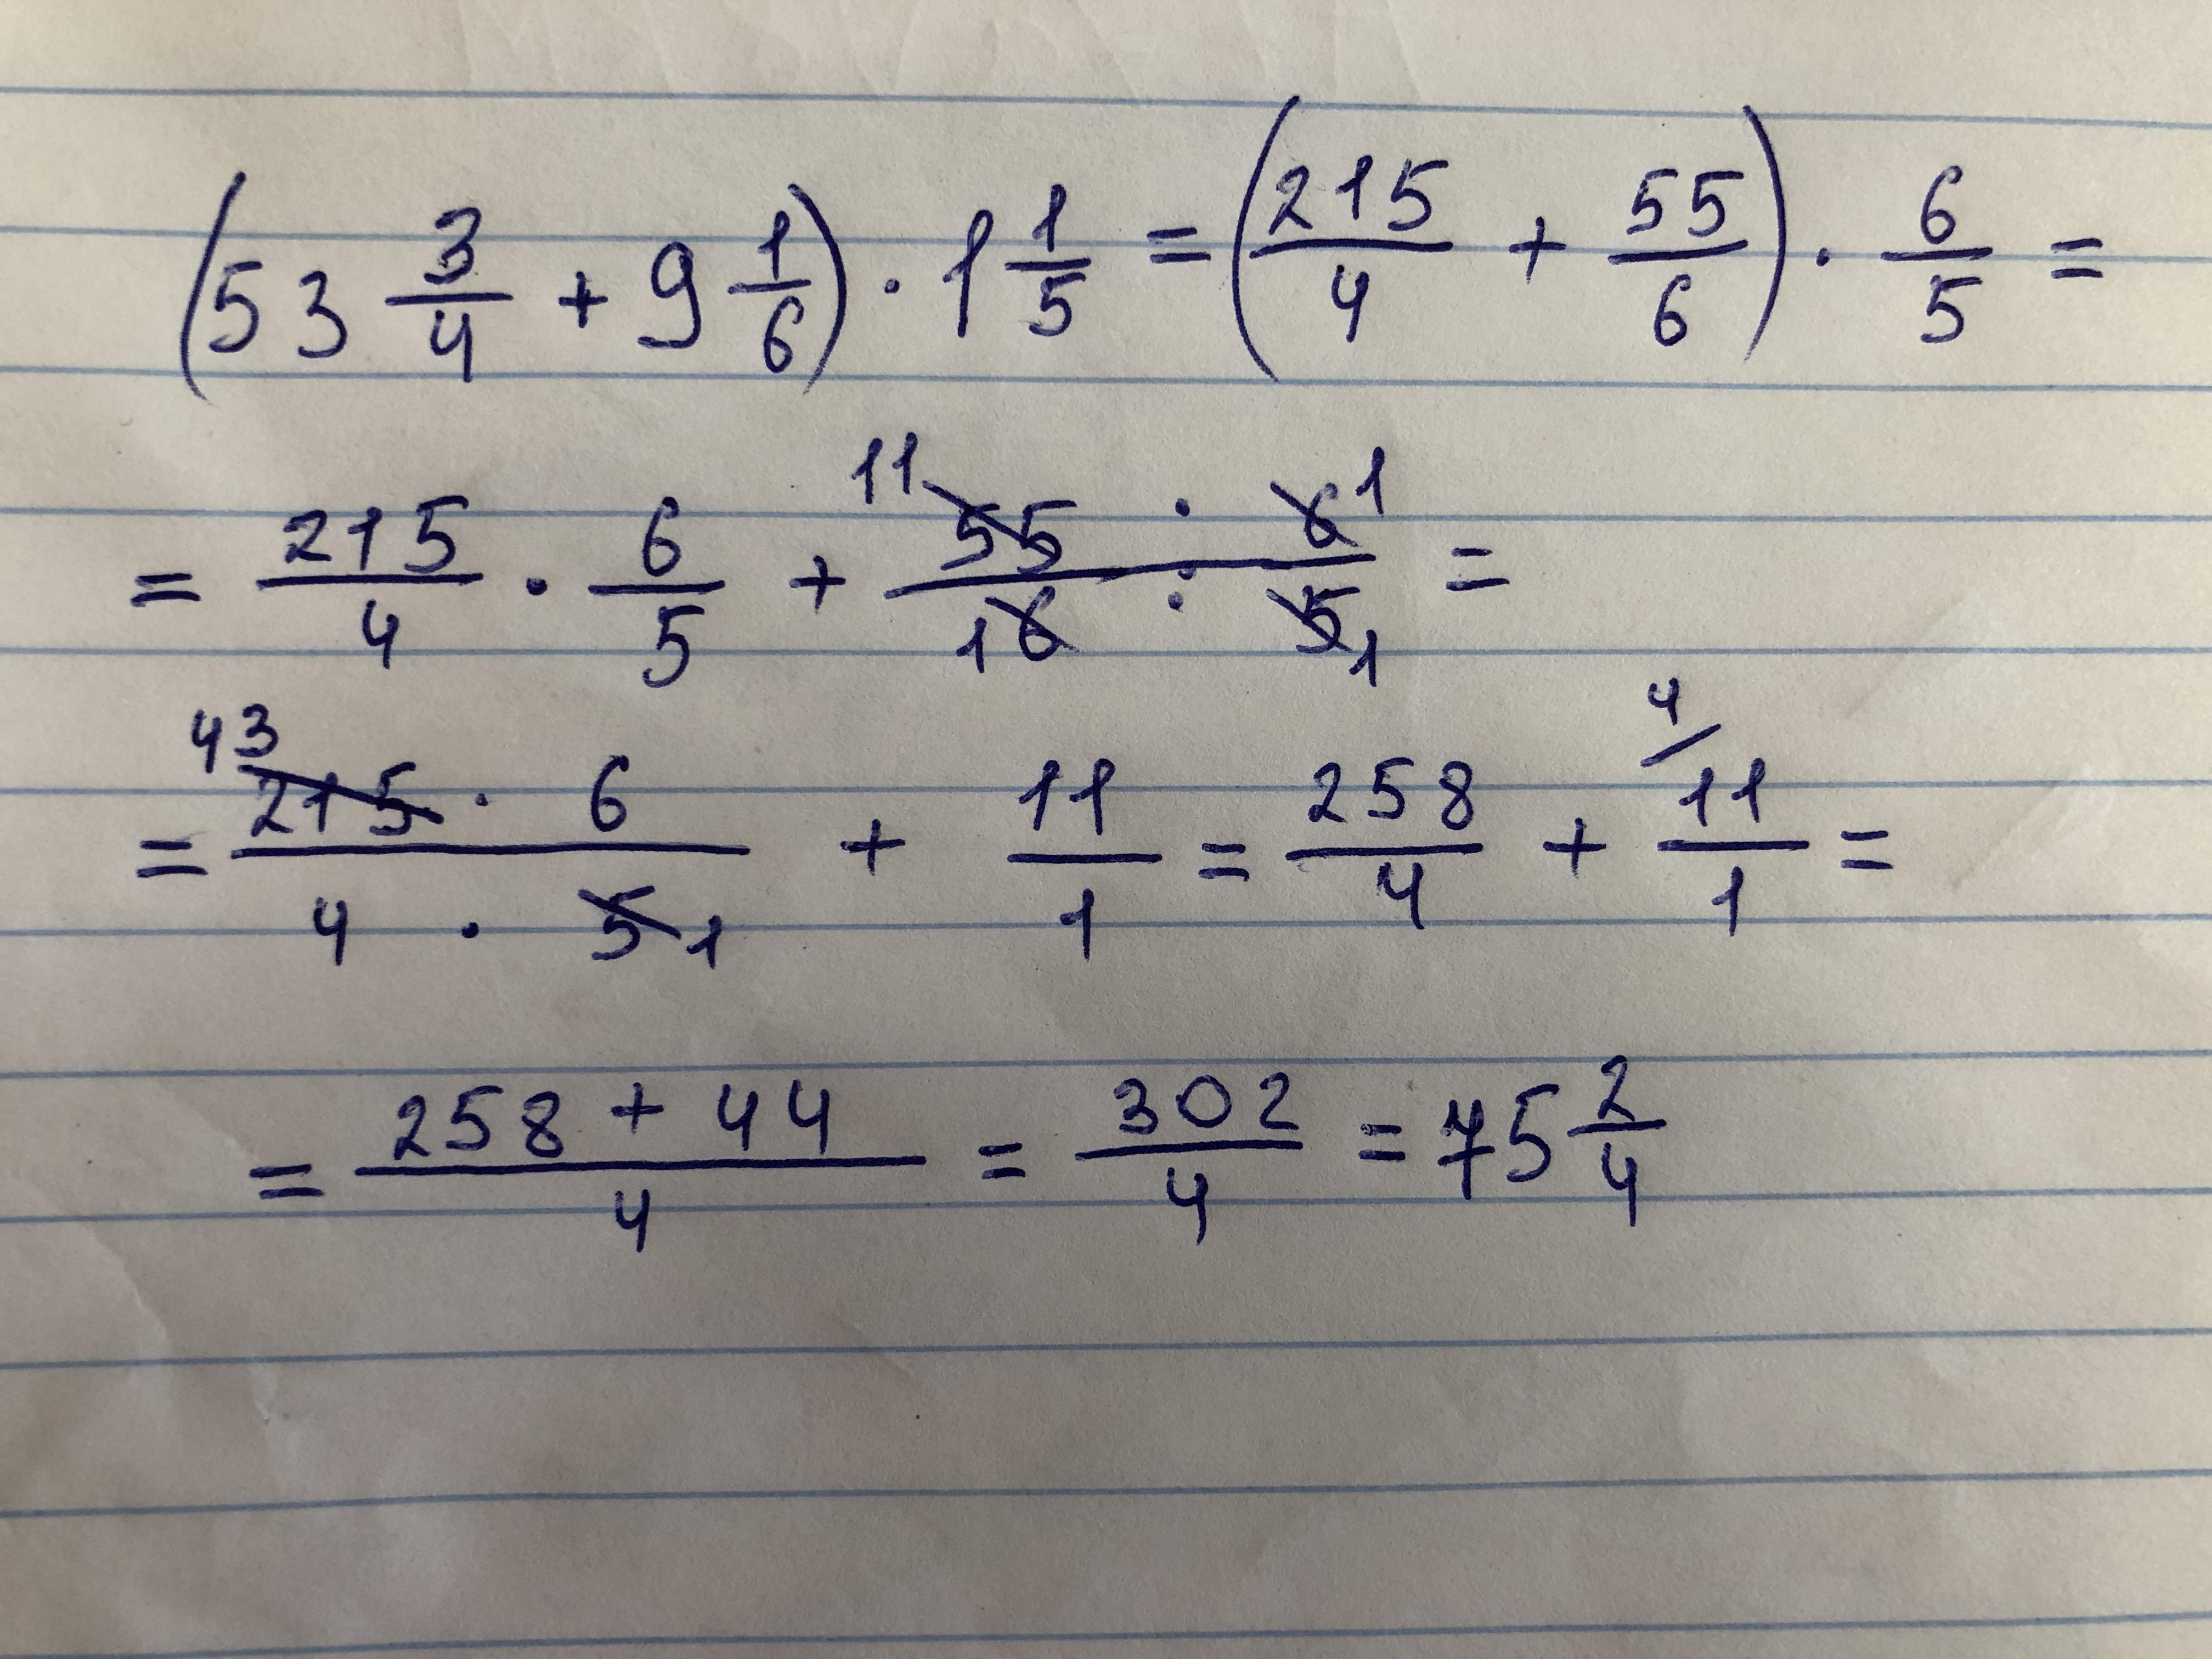 (53 3/4 + 9 1/6) · 1 1/5 = (215/4 + 55/6) · 6/5 =
= 215/4 · 6/5 + 11 55 · 6 1 / 1 6 · 5 1 =
= 43 215 · 6 / 4 · 5 1 + 11/1 = 258/4 + 4/ 11/1 =
= 258 + 44 / 4 = 302/4 = 75 2/4